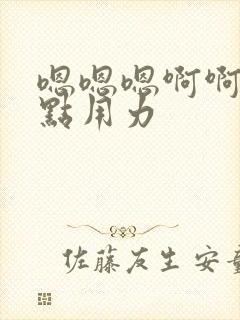 嗯嗯嗯啊啊
點用力
佐藤友生 安